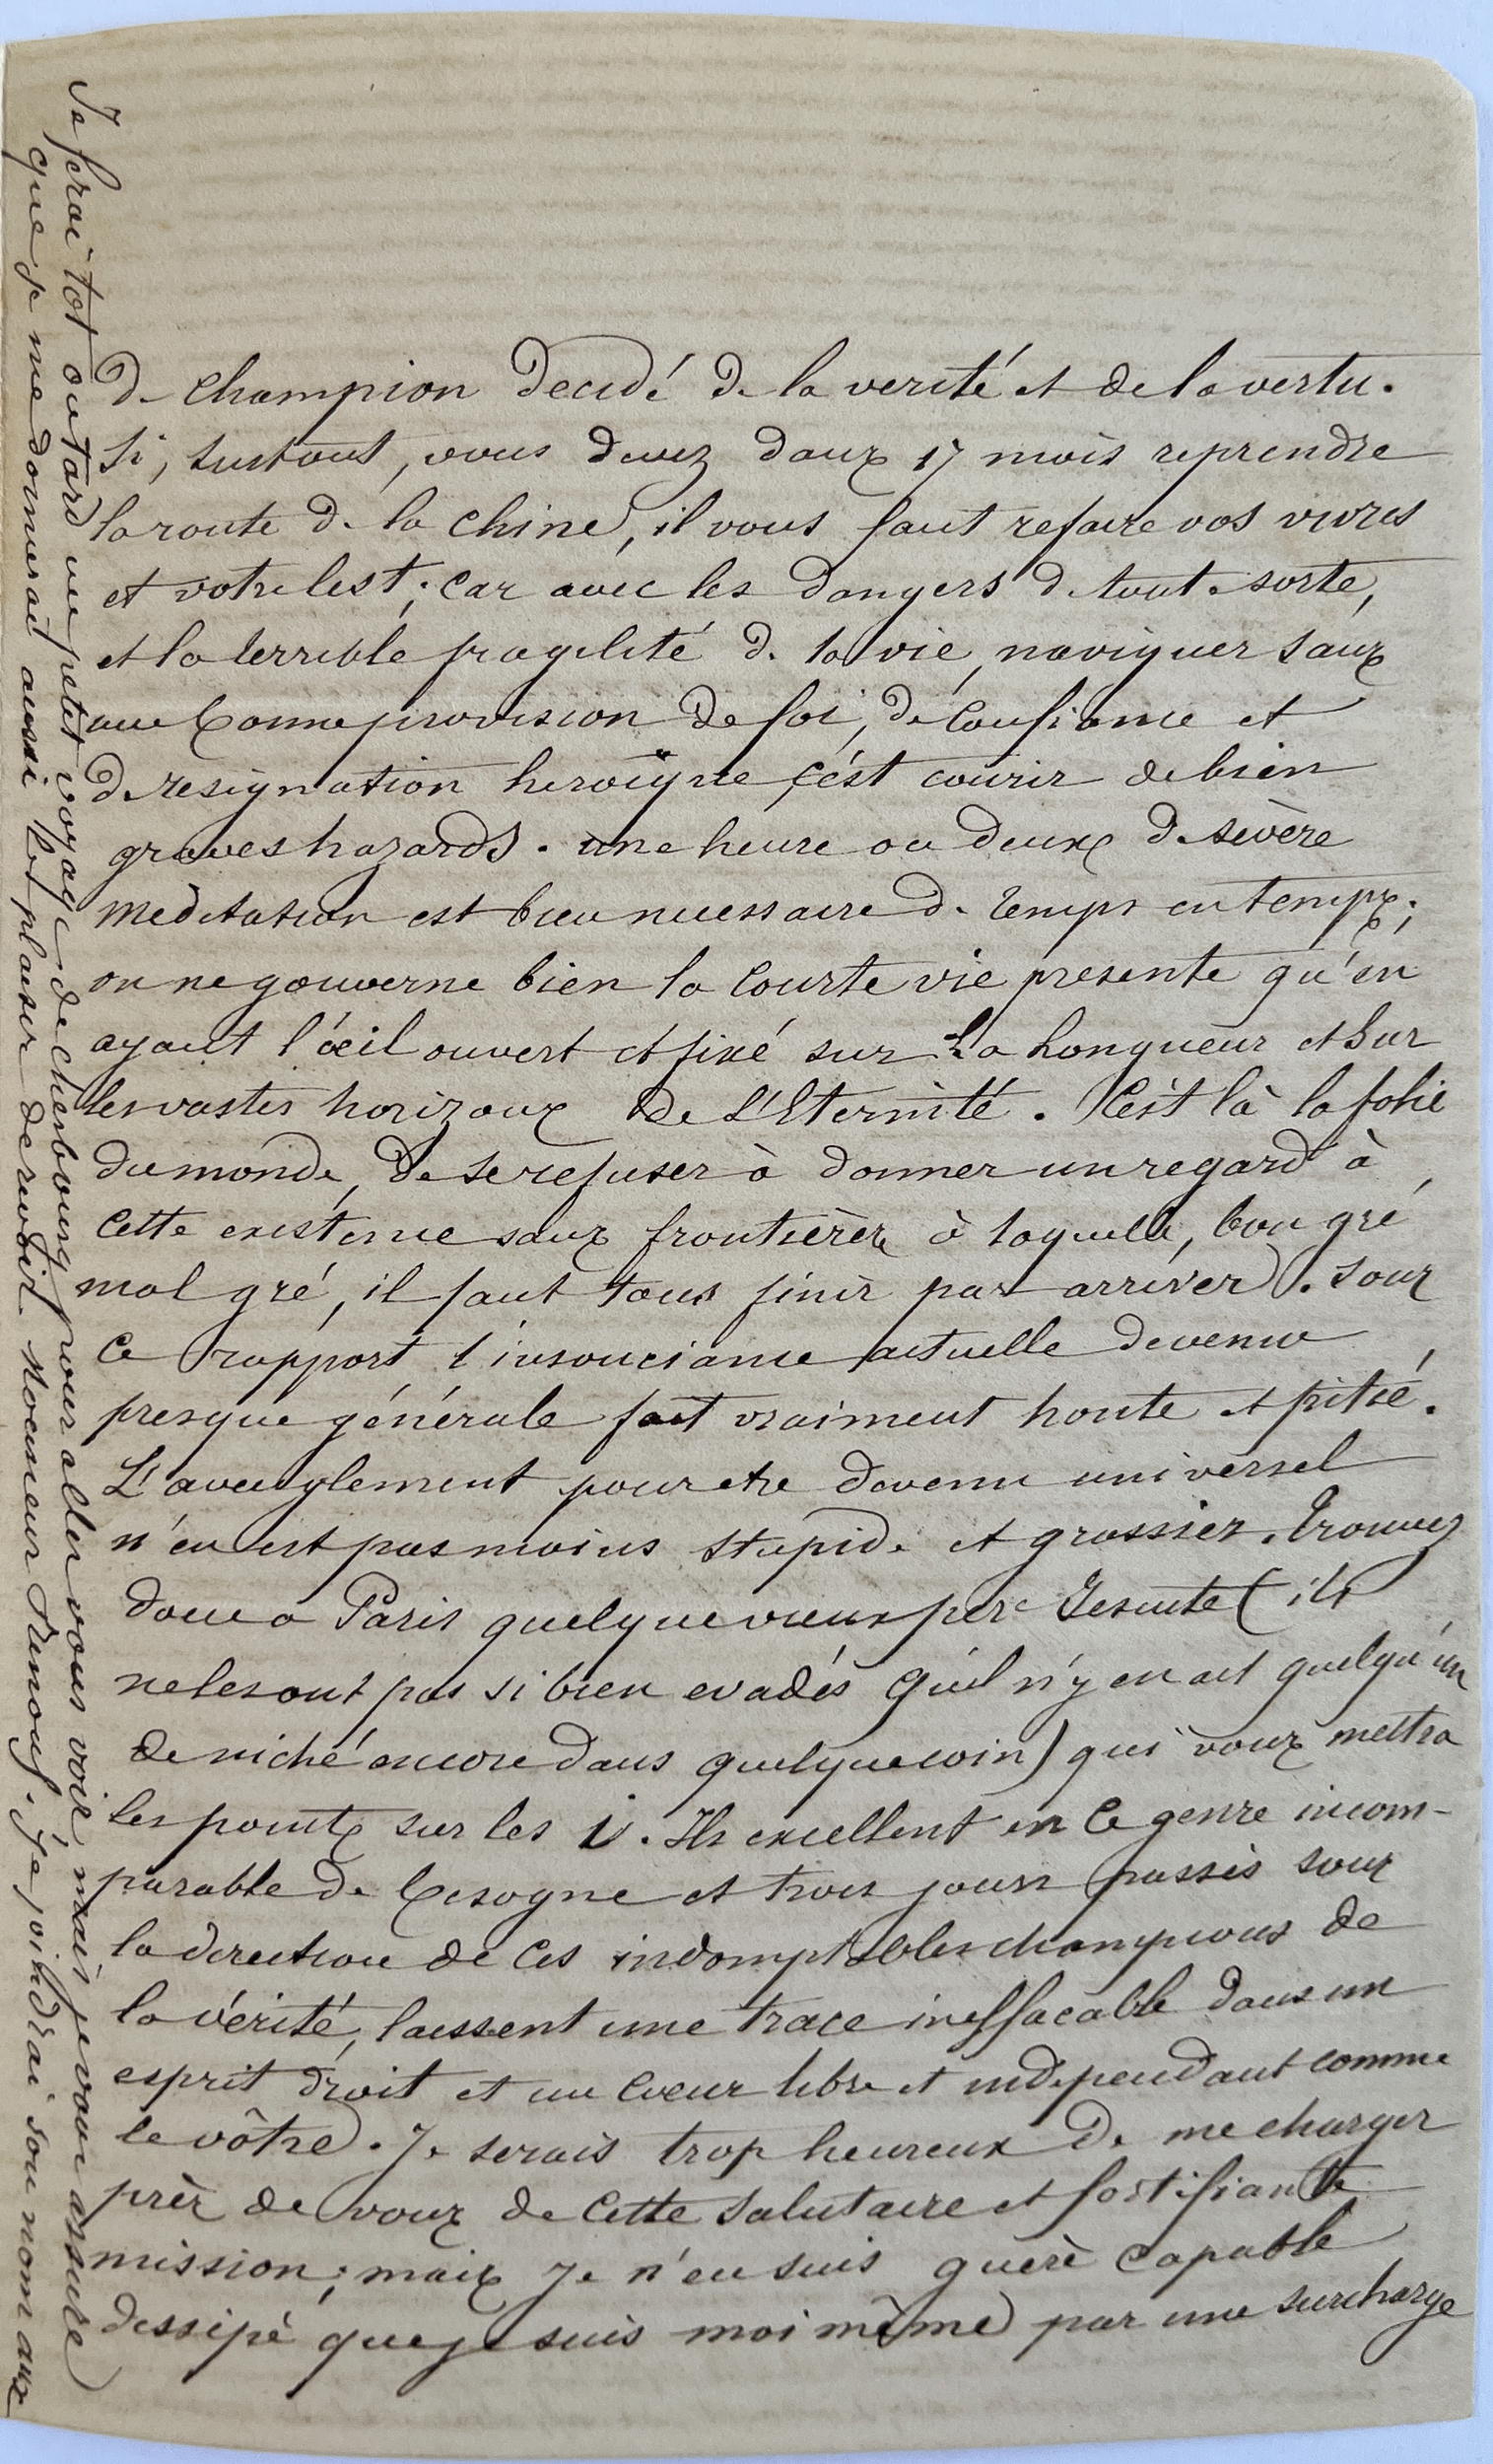 de champion decidé de la verité et de la vertu.
Si, surtout, vous devez dans 17 mois reprendre
la route de la Chine, il vous faut refaire vos vivres
et votre lest; car avec les dangers de toute sorte,
et la terrible fragilité de la vie, naviguer sans
une bonne provision de foi, de confiance et
de resignation heroïque, c'est courir de bien
graves hazards. une heure ou deux de sevère
meditation est bien necessaire de temps en temps;
on ne gouverne bien la courte vie presente qu'en
ayant l'œil ouvert et fixé sur La longueur et sur
les vastes horizons de L'Eternité. C'est là la folie
du monde, de se refuser à donner un regard à
cette existence sans frontières à laquelle, bon gré
mal gré, il faut tous finir par arriver. Sous
ce rapport l'insouciance actuelle devenue
presque générale fait vraiment honte et pitié.
L'aveuglement pour etre devenu universel
n'en est pas moins stupide et grossier. Trouvez
donc a Paris quelque vieux pere Jesuite (ils
ne les ont pas si bien evadés qu'il n'y en ait quelqu'un
de niché encore dans quelque coin) qui vous mettra
les points sur les i. Ils excellent en ce genre incom-
parable de besogne et trois jours passés sous
la direction de ces indomptables champions de
la vérité, laissent une trace ineffaçable dans un
esprit droit et un cœur libre et independant comme
le vôtre. Je serais trop heureux de me charger
près de vous de cette salutaire et fortifiante
mission; mais Je n'en suis guerè capable
dissipé que je suis moi même par une surcharge
Je ferai tot ou tard un petit voyage de cherbourg pour aller vous voir, mais je vous assure
que je me donnerai aussi le plaisir de revoir Monsieur Renouf. Je joindrai son nom aux